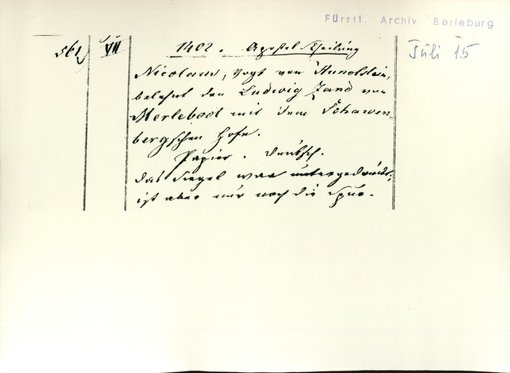 Fürstl. Archiv Berleburg
Juli 15
561 VII 1402. Apostel Theilung
Nicolaus, Vogt von Hunolstein,
belehnt den Ludwig Zand von
Merlebod mit dem Schawen
bergschen Hofe.
Papier. Deutsch.
Das Siegel war untergedrückt,
ist aber nur noch die Spur.